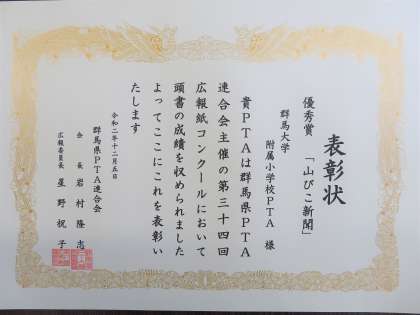 表彰状
優秀賞 「山びこ新聞」
群馬大学
附属小学校PTA 様
貴PTAは群馬県PTA
連合会主催の第三十四回
広報紙コンクールにおいて
頭書の成績を収められました
よってここにこれを表彰い
たします
令和二年十二月五日
群馬県PTA連合会
会長 岩村隆志
広報委員長 星野祝子